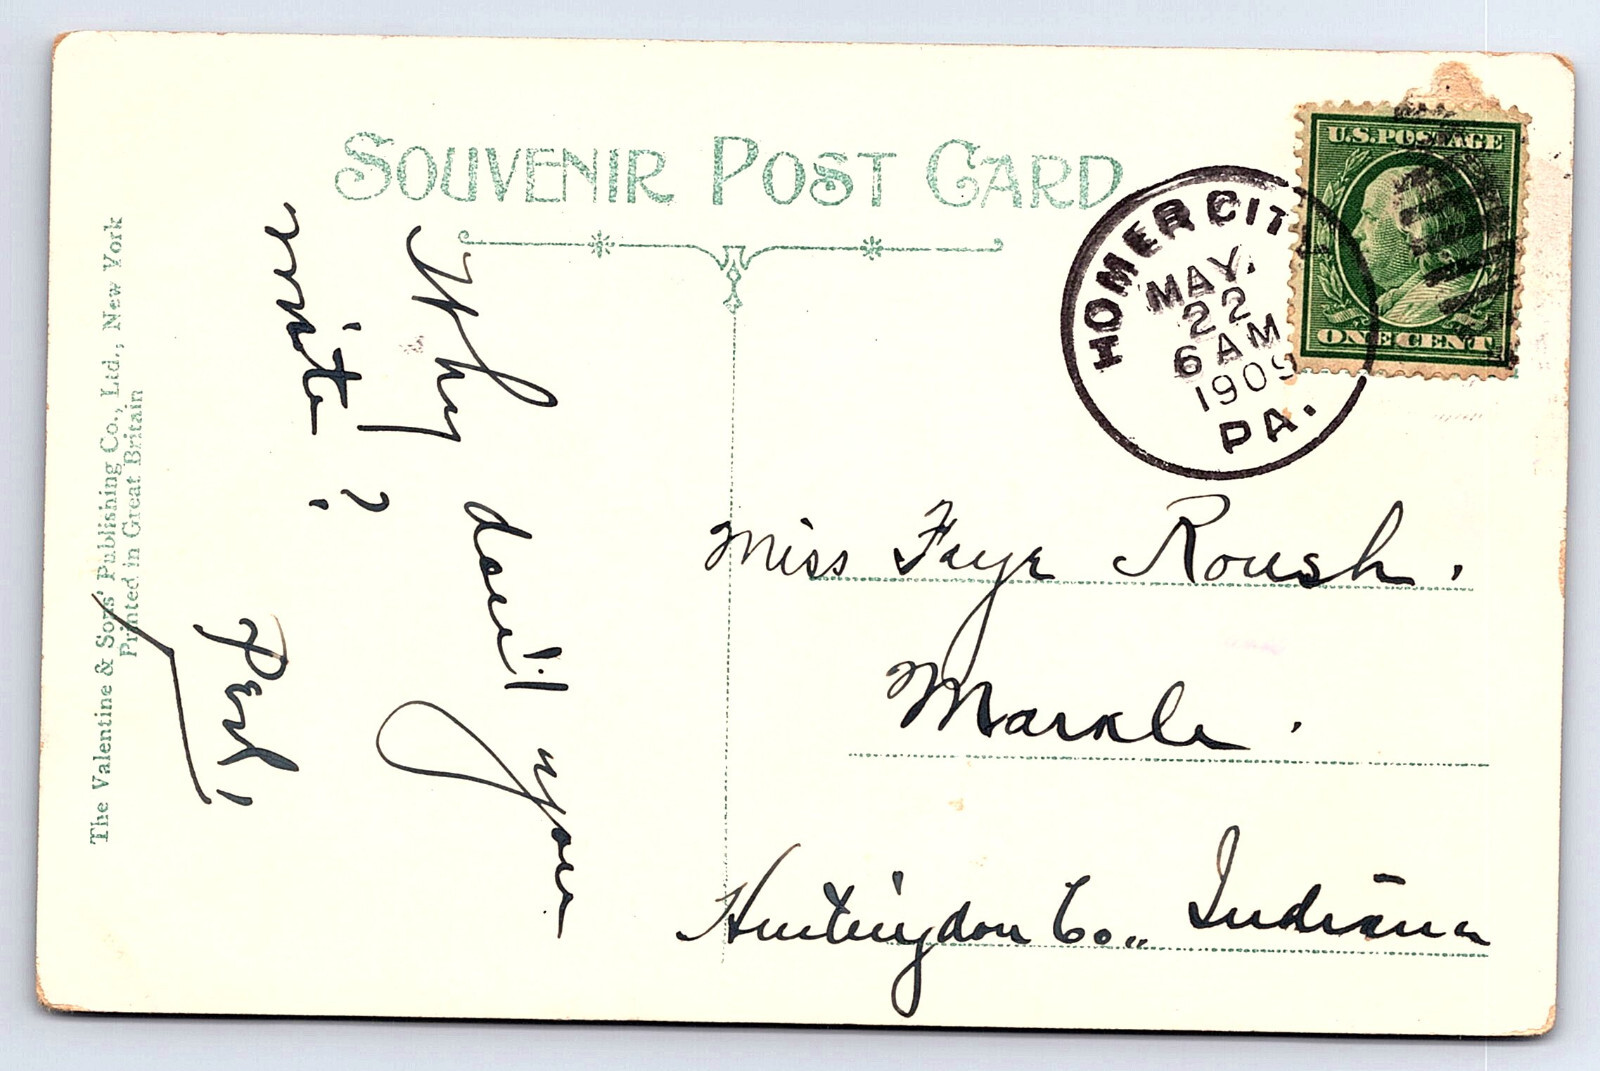 SOUVENIR POST CARD
HOMER CITY
MAY.
22
6 AM
1909
PA.
U.S. POSTAGE
ONE CENT
Why don't you
write?
Pearl,
Miss Faye Roush.
Markle.
Huntingdon Co., Indiana
The Valentine & Sons' Publishing Co., Ltd., New York
Printed in Great Britain